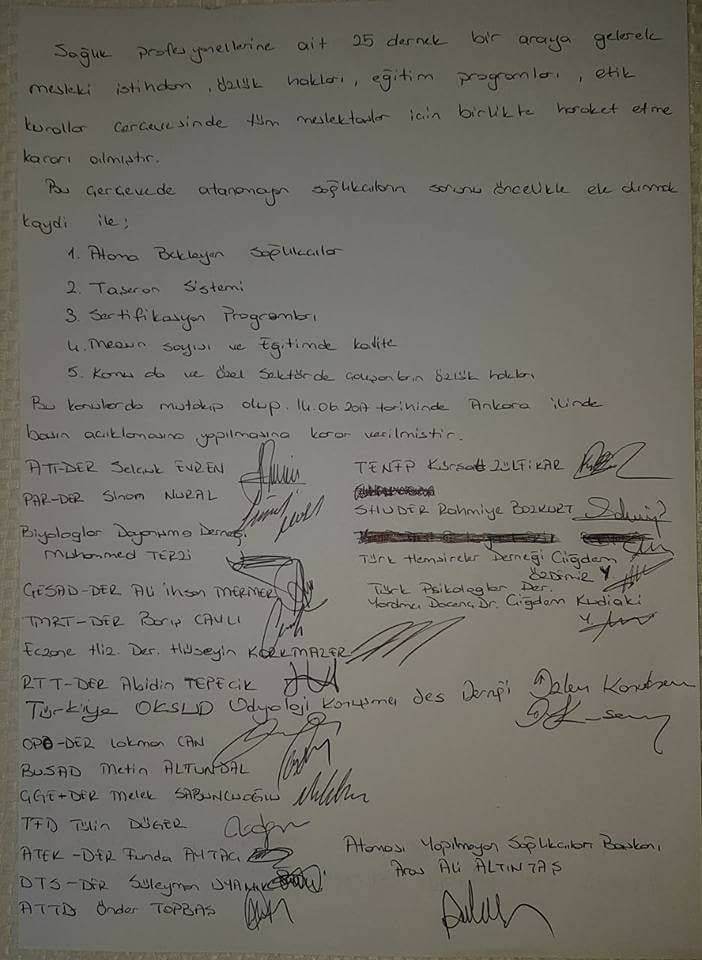 Sağlık profesyonellerine ait 25 dernek bir araya gelerek
mesleki istihdam, özlük hakları, eğitim programları, etik
kurallar çerçevesinde tüm meslektaşlar için birlikte hareket etme
kararı almıştır.
Bu çerçevede atanamayan sağlıkcıların sorunu öncelikle ele alınmak
kaydi ile;
1. Atama Bekleyen Sağlıkcılar
2. Taşeron Sistemi
3. Sertifikasyon Programları
4. Mezun sayısı ve Eğitimde kalite
5. Kamu da ve özel Sektörde çalışanların özlük hakları
Bu konularda mutakıp olup. 14.06.2017 tarihinde Ankara ilinde
basın açıklamasına yapılmasına karar verilmiştir.
ATT-DER Selçuk EVREN
TENFP Kürşat ZÜLFİKAR
PAR-DER Sinam NURAL
SHUDER Rahmiye BOZKURT
Biyologlar Dayanışma Derneği
Muhammed TERZİ
Türk Hemşireler Derneği Çiğdem
ÖZDEMİR
GESAD-DER Ali ihsan MERMER
Türk Psikologlar Der.
Yardımcı Doçent Dr. Çiğdem
TMRT-DER Barış CAVLI
Eczane Hiz. Der. Hüseyin KORKMAZER
RTT-DER Abidin TEPECİK
Türkiye Odyoloji Konuşma ses Derneği
OPO-DER Lokman CAN
BUSAD Metin ALTUNDAL
GGE+DER Melek SABUNCUOĞLU
TFD Tülin DÜGER
Ataması Yapılmayan Sağlıkcıları Başkanı
ATEK-DER Funda AYTAÇ
Aras Ali ALTINTAŞ
DTS-DER Süleyman UYANIK
ATTD Önder TOPBAŞ